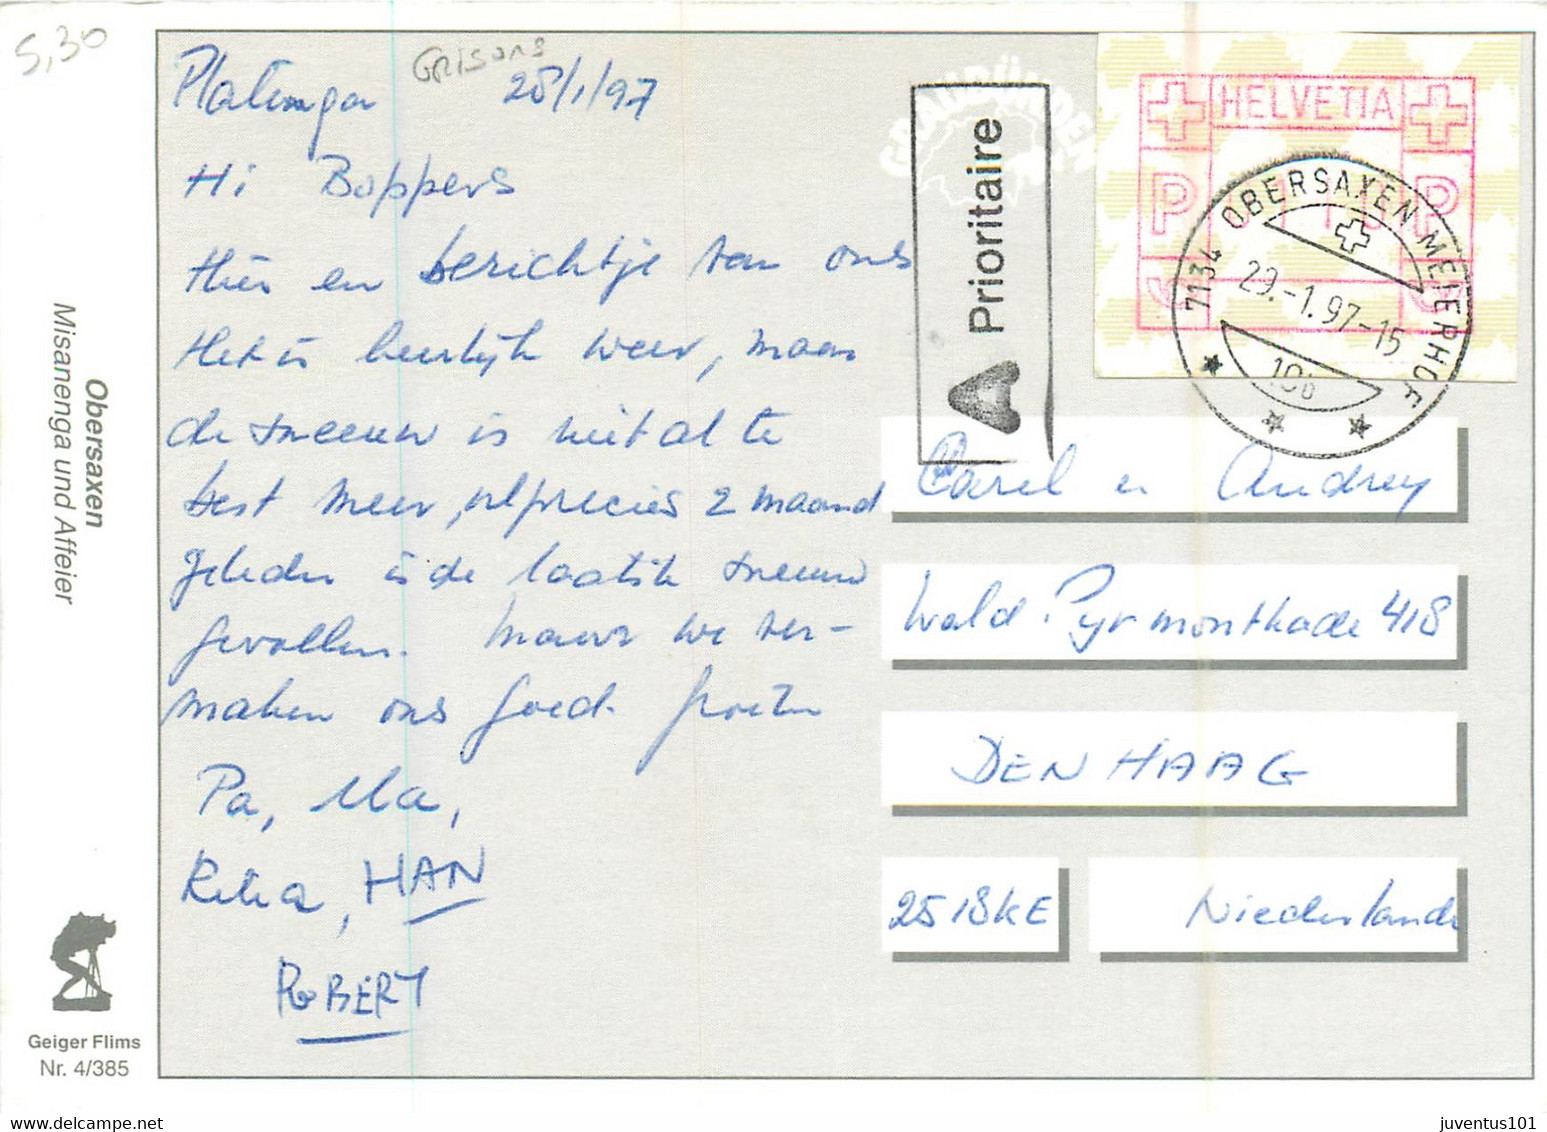 5,30
Grisons
Platenga 28/1/97
Hi Boppers
Hier en berichtje van ons
Het is heerlijk weer, maar
de sneeuw is niet al te
best meer, precies 2 maand
geleden is de laatste sneeuw
gevallen. Maar we ver-
maken ons goed. groeten
Pa, Ma,
Retia, HAN
ROBERT
Obersaxen
Misanenga und Affeier
Geiger Flims
Nr. 4/385
GRAUBÜNDEN
A Prioritaire
HELVETIA
P P
7134 OBERSAXEN MEIERHOF
29.-1.97-15
Carel en Audrey
Wald. Pyrmontkade 418
DEN HAAG
2518KE Niederlande
delcampe.net
juventus101